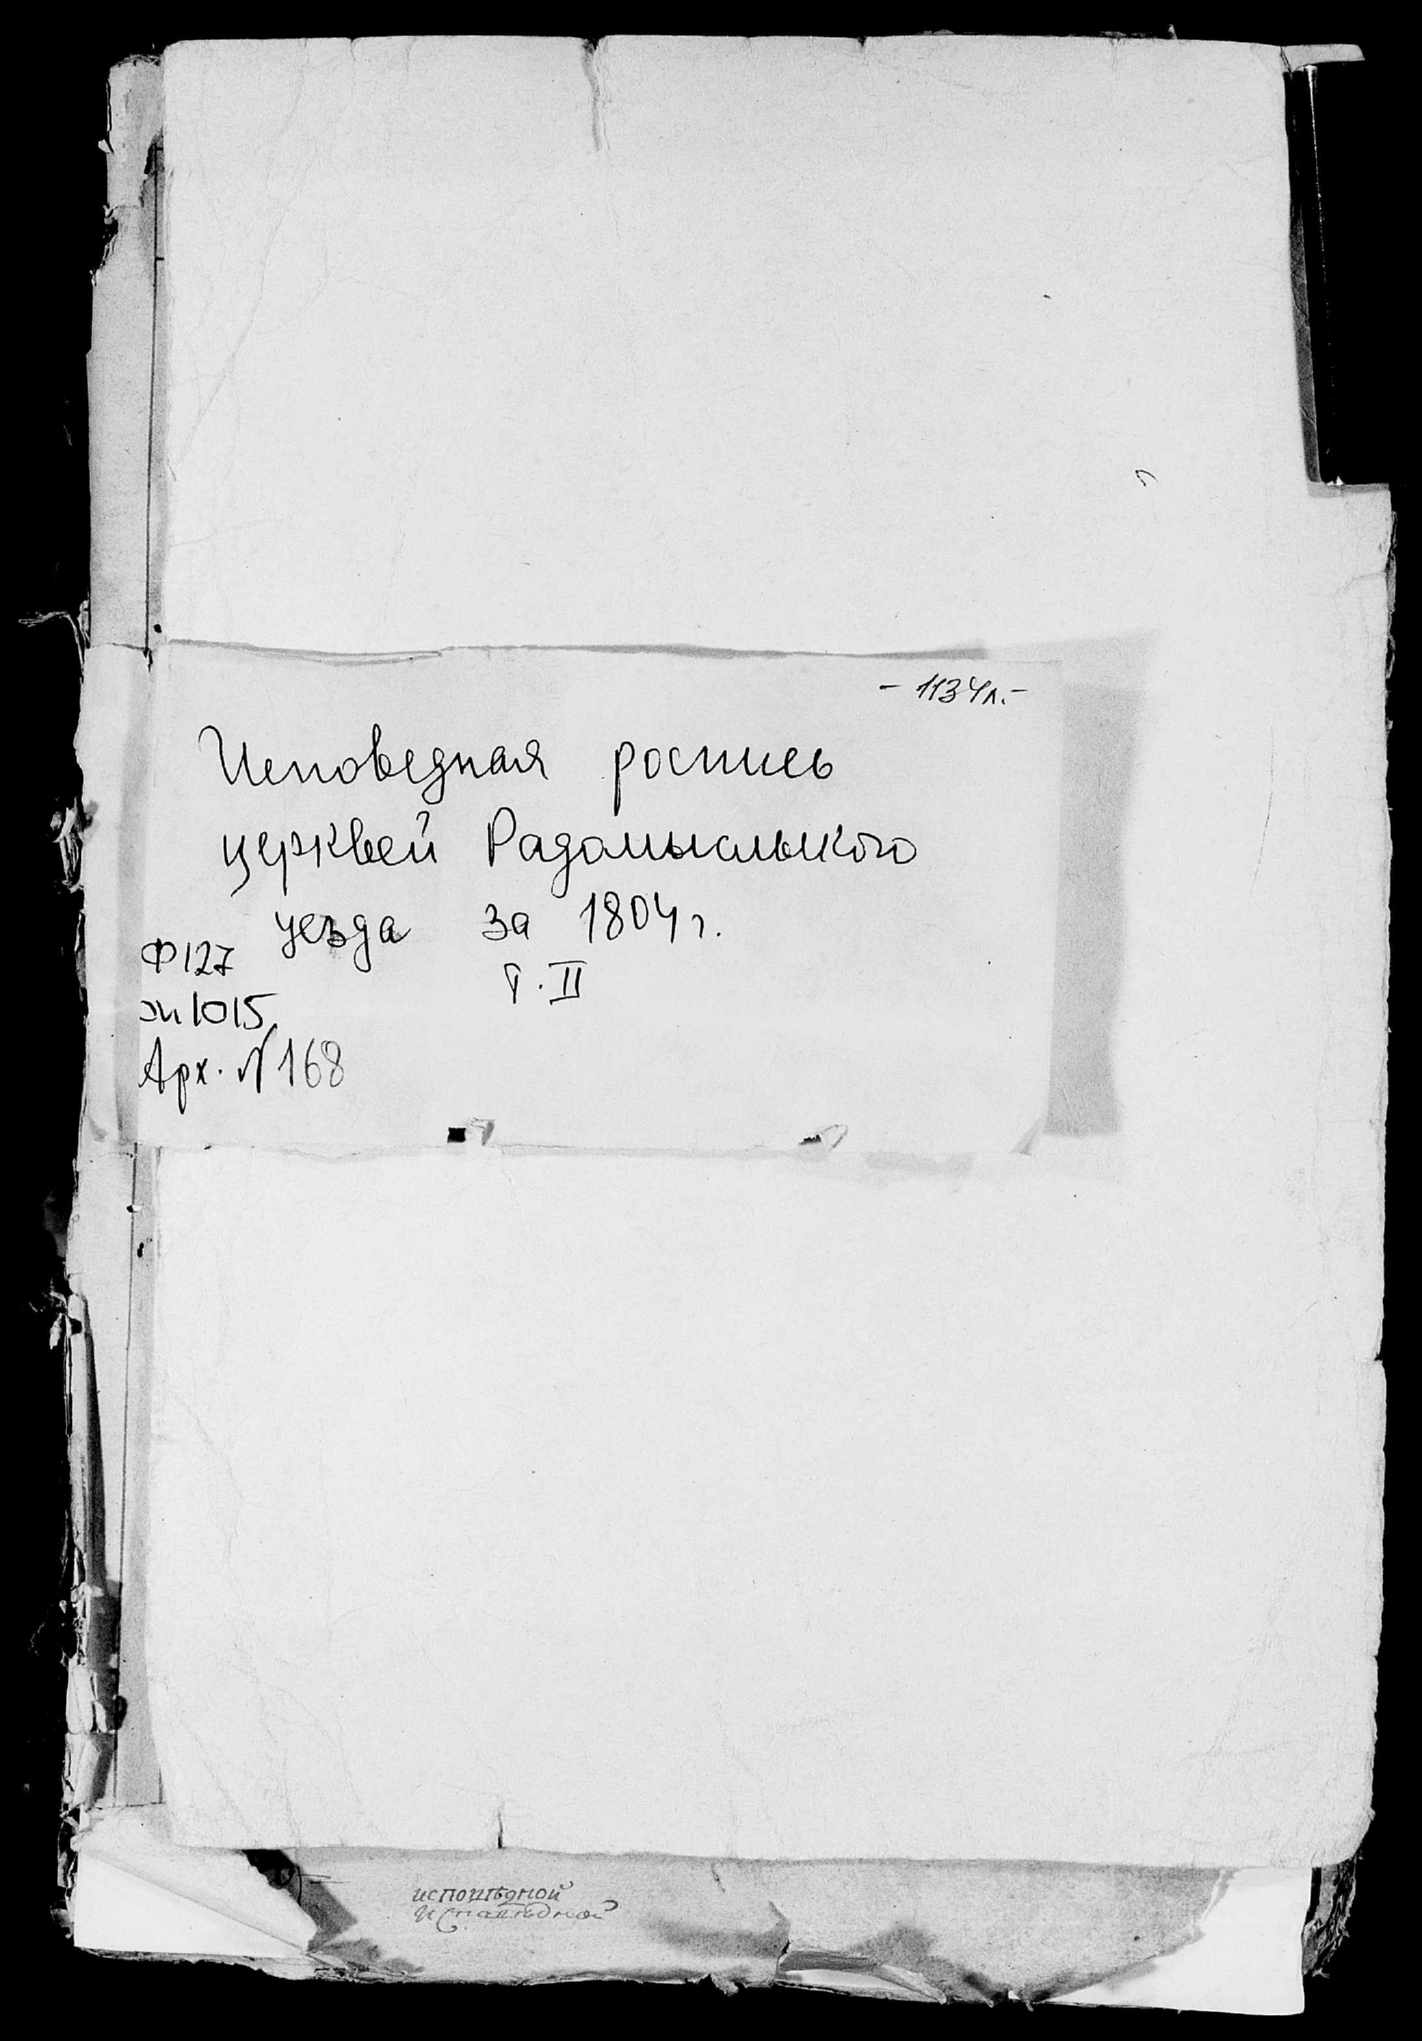 - 1134л. -
Исповедная роспись
церквей Радомысльского
уезда за 1804 г.
Т. II
Ф 127
оп 1015
Арх. № 168
исповѣдной
исповѣдной